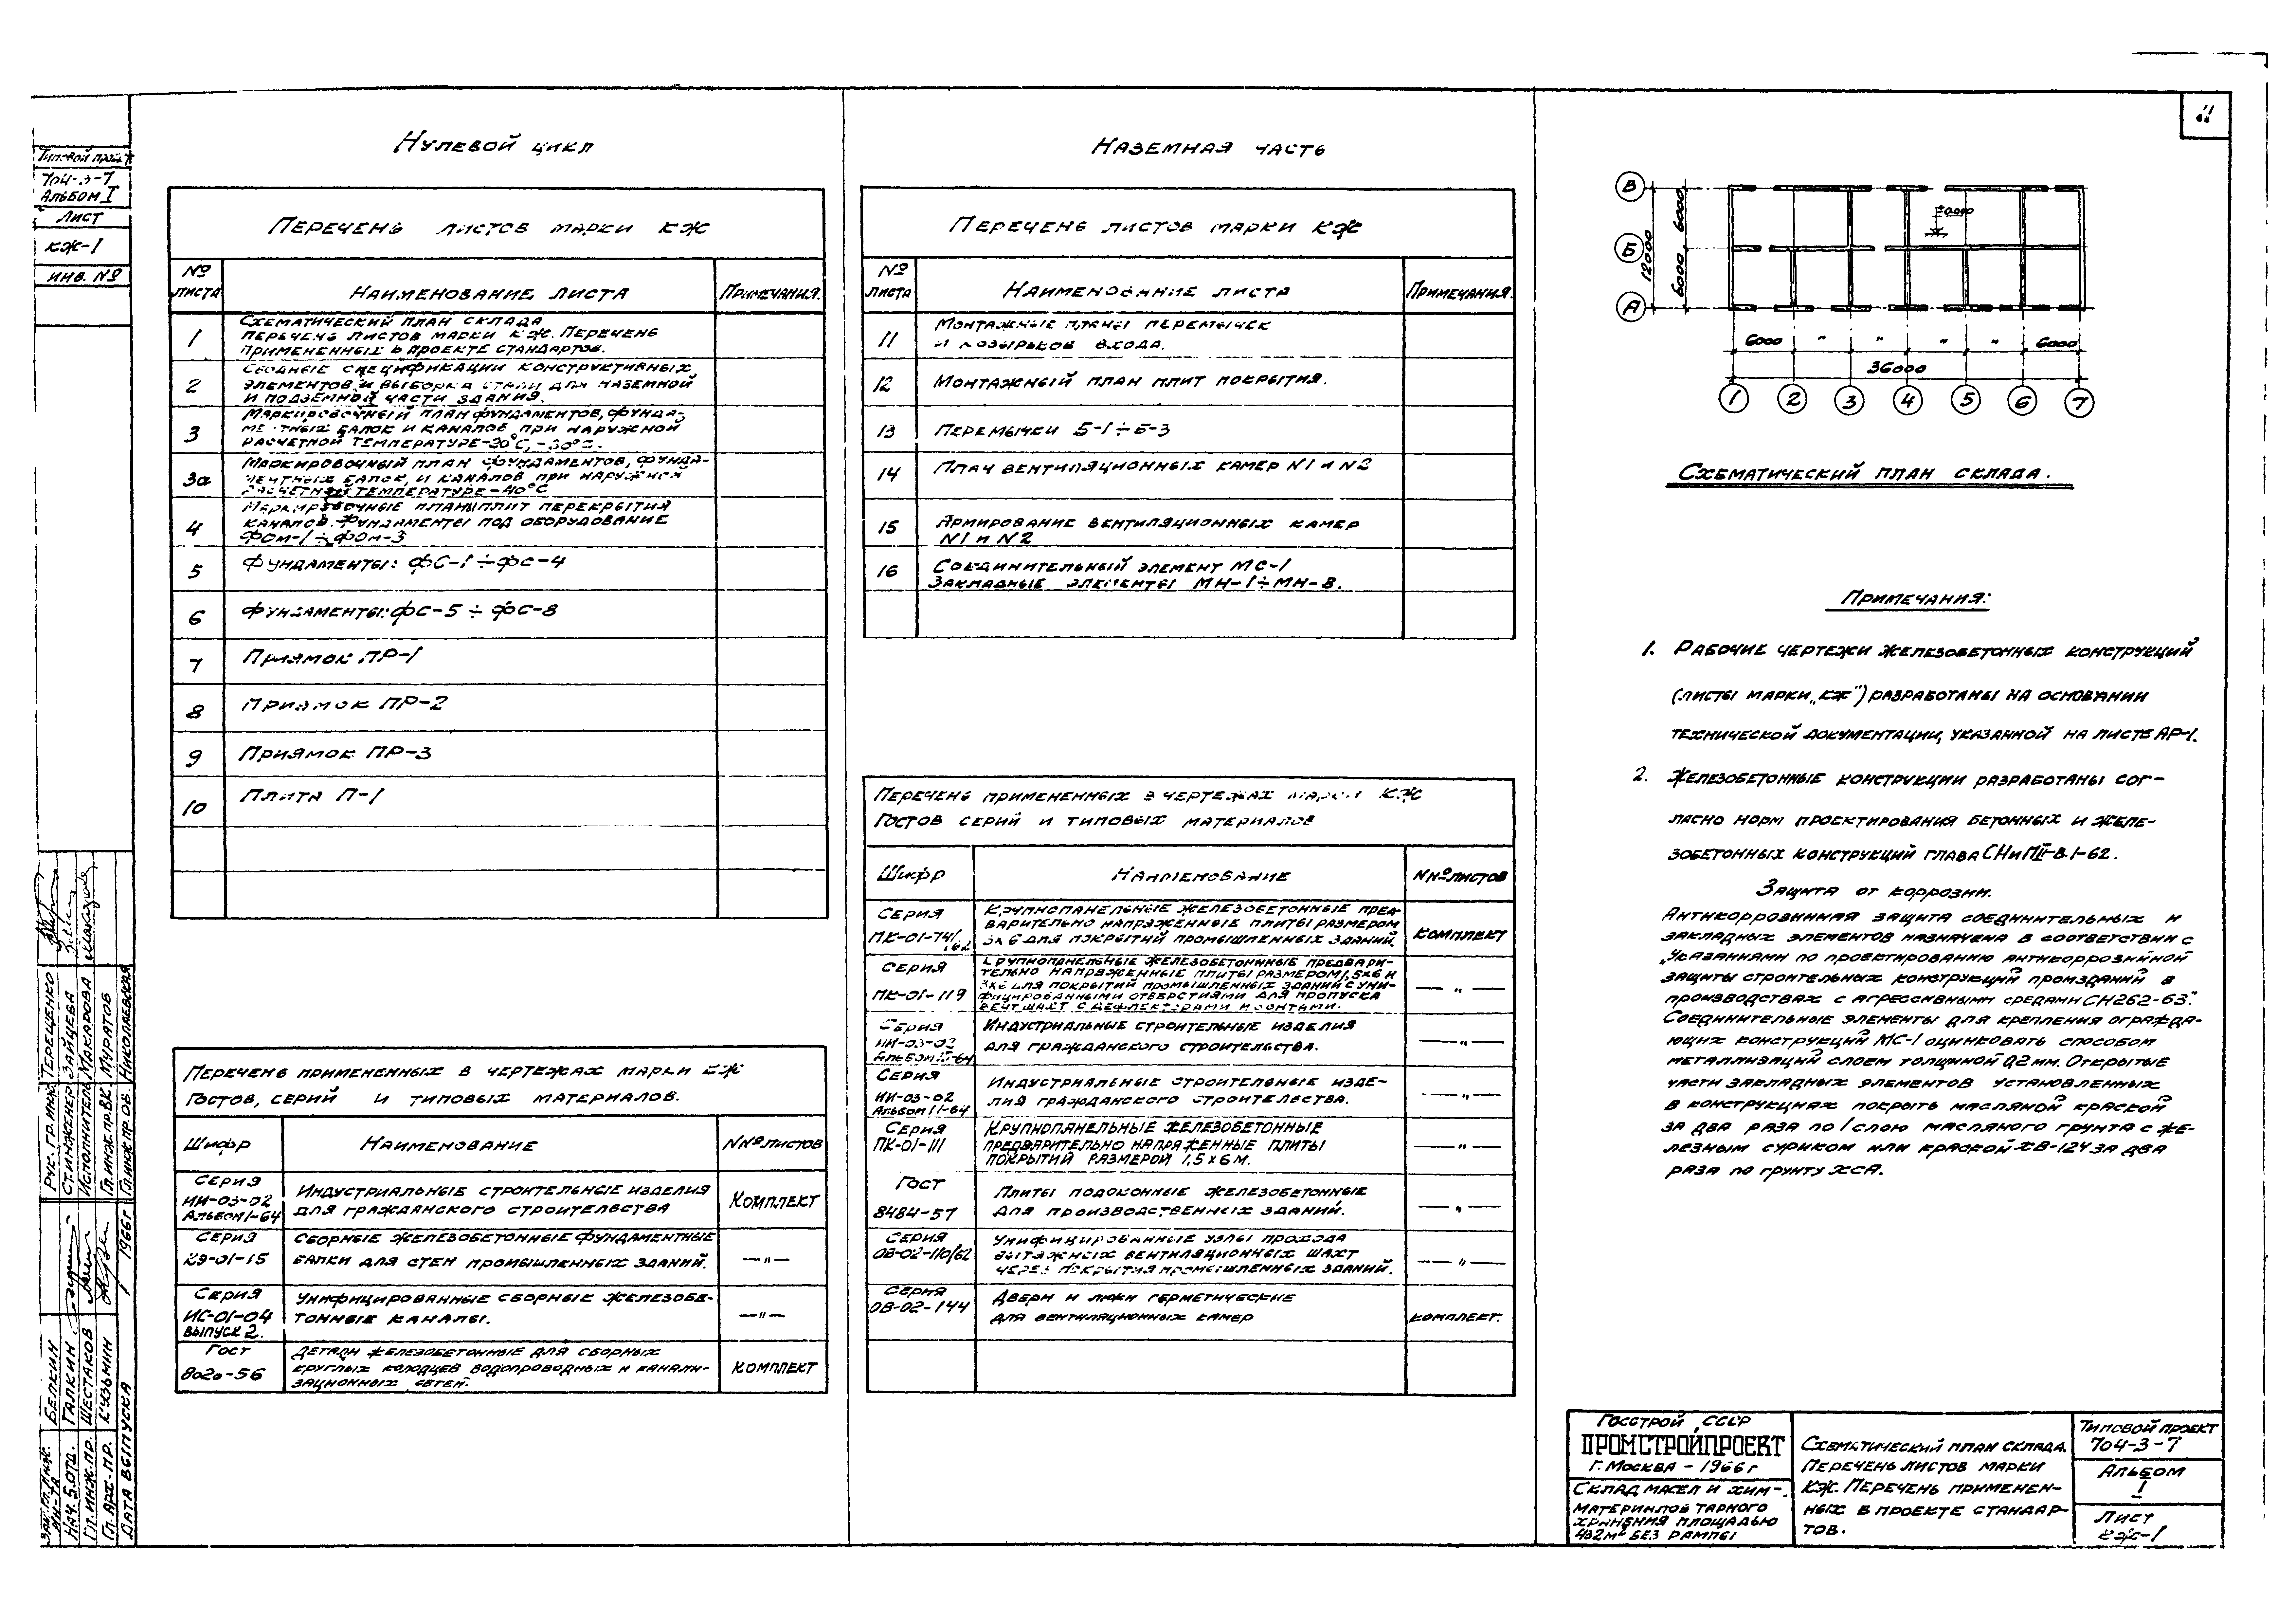 Типовой проект
704-3-7
Альбом I
Лист
КЖ-1
ИНВ. №
Нулевой цикл
Перечень листов марки КЖ
№ листа
Наименование листа
Примечания.
1
Схематический план склада
Перечень листов марки КЖ. Перечень
примененных в проекте стандартов.
2
Сводные спецификации конструктивных
элементов и выборка стали для наземной
и подземной части здания.
3
Маркировочный план фундаментов, фунда-
ментных балок и каналов при наружной
расчетной температуре-20°С, -30°С.
3а
Маркировочный план фундаментов, фунда-
ментных балок, и каналов при наружной
расчетной температуре-40°С
4
Маркировочные планы плит перекрытия
каналов. Фундаменты под оборудование
ФОм-1÷ФОм-3
5
Фундаменты: ФС-1÷ФС-4
6
Фундаменты: ФС-5÷ФС-8
7
Приямок ПР-1
8
Приямок ПР-2
9
Приямок ПР-3
10
Плита П-1
Перечень примененных в чертежах марки КЖ
Гостов, серий и типовых материалов.
Шифр
Наименование
NNº листов
Серия
ИИ-03-02
Альбом 1-64
Индустриальные строительные изделия
для гражданского строительства
Комплект
Серия
КЭ-01-15
Сборные железобетонные фундаментные
балки для стен промышленных зданий.
—"—
Серия
ИС-01-04
выпуск 2.
Унифицированные сборные железобе-
тонные каналы.
—"—
Гост
8020-56
Детали железобетонные для сборных
круглых колодцев водопроводных и канали-
зационных сетей.
Комплект
Наземная часть
Перечень листов марки КЖ
№ листа
Наименование листа
Примечания.
11
Монтажные планы перемычек
и козырьков входа.
12
Монтажный план плит покрытия.
13
Перемычки Б-1÷Б-3
14
План вентиляционных камер N1 и N2
15
Армирование вентиляционных камер
N1 и N2
16
Соединительный элемент МС-1
Закладные элементы МН-1÷МН-8.
Перечень примененных в чертежах марки КЖ
Гостов серий и типовых материалов
Шифр
Наименование
NNº листов
Серия
ПК-01-74/62
Крупнопанельные железобетонные пред-
варительно напряженные плиты размером
3х6 для покрытий промышленных зданий.
Комплект
Серия
ПК-01-119
Крупнопанельные железобетонные предвари-
тельно напряженные плиты размером 1,5х6 и
3х6 для покрытий промышленных зданий с уни-
фицированными отверстиями для пропуска
вентшахт с дефлекторами и зонтами.
—"—
Серия
ИИ-03-02
Индустриальные строительные изделия
для гражданского строительства.
—"—
Серия
ИИ-03-02
Альбом 11-64
Индустриальные строительные изде-
лия гражданского строительства.
—"—
Серия
ПК-01-111
Крупнопанельные железобетонные
предварительно напряженные плиты
покрытий размером 1,5х6м.
—"—
Гост
8484-57
Плиты подоконные железобетонные
для производственных зданий.
—"—
Серия
ОВ-02-110/62
Унифицированные узлы прохода
вытяжных вентиляционных шахт
через покрытия промышленных зданий.
—"—
Серия
ОВ-02-144
Двери и люки герметические
для вентиляционных камер
комплект.
В
Б
А
12000
6000
6000
±0.000
6000
"
"
"
"
6000
36000
1
2
3
4
5
6
7
Схематический план склада.
Примечания:
1. Рабочие чертежи железобетонных конструкций
(листы марки „КЖ") разработаны на основании
технической документации, указанной на листе АР-1.
2. Железобетонные конструкции разработаны сог-
ласно норм проектирования бетонных и желе-
зобетонных конструкций глава СНиПII-В.1-62.
Защита от коррозии.
Антикоррозийная защита соединительных и
закладных элементов назначена в соответствии с
„Указаниями по проектированию антикоррозийной
защиты строительных конструкций промзданий в
производствах с агрессивными средами СН262-63".
Соединительные элементы для крепления огражда-
ющих конструкций МС-1 оцинковать способом
металлизаций слоем толщиной 0,2 мм. Открытые
части закладных элементов установленных
в конструкциях покрыть масляной краской
за два раза по 1 слою масляного грунта с же-
лезным суриком или краской ХВ-124 за два
раза по грунту ХСА.
Госстрой СССР
ПРОМСТРОЙПРОЕКТ
г. Москва - 1966г
Склад масел и хим-
материалов тарного
хранения площадью
432м² без рампы
Схематический план склада.
Перечень листов марки
КЖ. Перечень применен-
ных в проекте стандар-
тов.
Типовой проект
704-3-7
Альбом
I
Лист
КЖ-1
Рук. гр. инж. Терещенко
Ст. инженер Зайцева
Исполнитель Макарова
Гл. инж. пр. ВК. Муратов
Гл. инж. пр. ОВ. Николаевская
Белкин
Нач. Б. отд. Галкин
Гл. инж. пр. Шестаков
Гл. арх. пр. Кузьмин
Дата выпуска 1966г